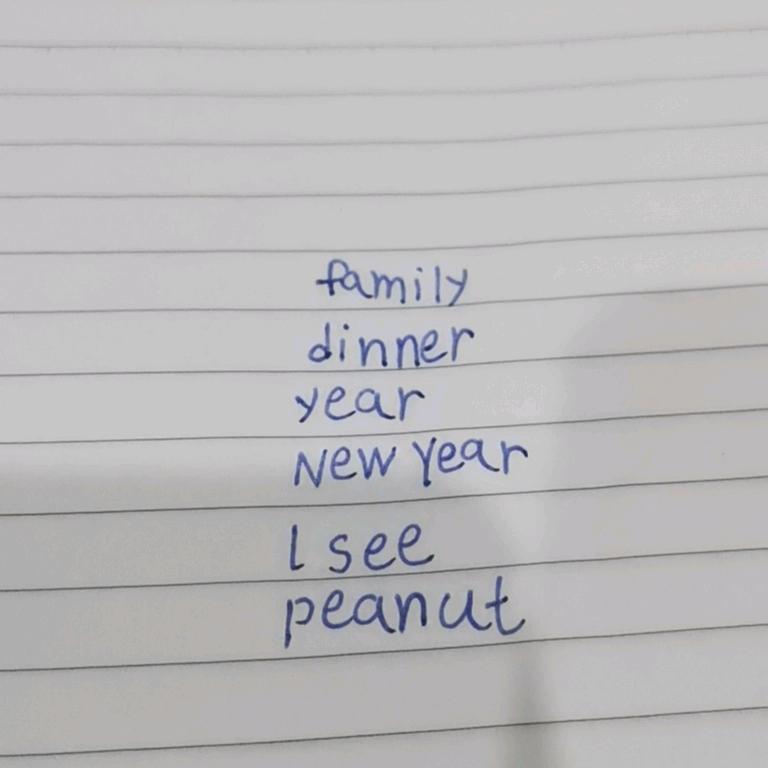 family
dinner
year
New Year
I see
peanut